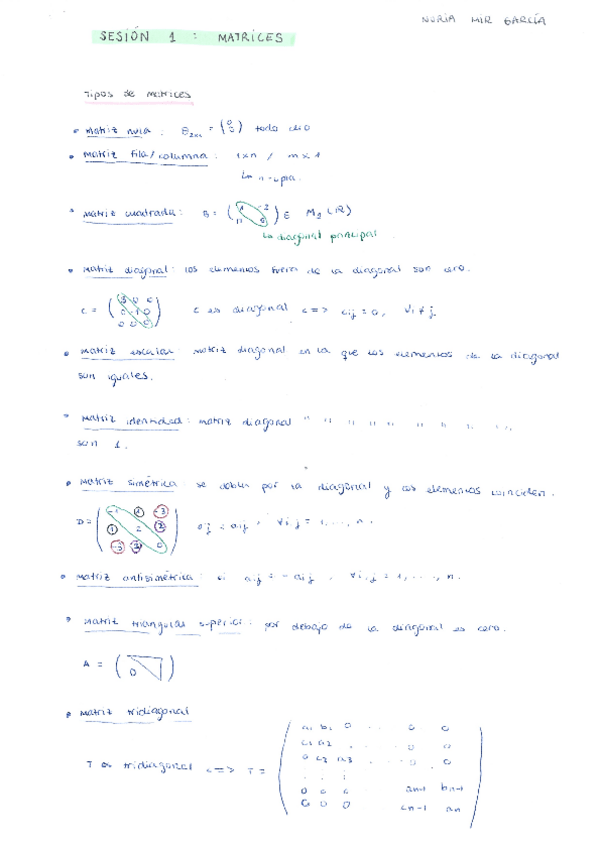 NURIA MIR GARCÍA
SESIÓN 1 : MATRICES
Tipos de matrices
• Matriz nula : θ2x1 = (0 0) todo cero
• Matriz fila/columna : 1xn / mx1
↳ n-upla.
• Matriz cuadrada : B = ( -2 ) ∈ M2 (R)
↳ diagonal principal
• Matriz diagonal : los elementos fuera de la diagonal son cero.
C = C es diagonal <=> cij = 0, ∀i≠j
• Matriz escalar : matriz diagonal en la que los elementos de la diagonal
son iguales.
• Matriz identidad : matriz diagonal " " " " " " " "
son 1.
• Matriz simétrica : se dobla por la diagonal y los elementos coinciden.
D = ( -1 1 -3
1 2 2
-3 2 0 ) aij = aji , ∀i,j = 1, ..., n.
• Matriz antisimétrica : si aij = - aij , ∀i,j = 1, ..., n.
• Matriz triangular superior : por debajo de la diagonal es cero.
A = ( 0 )
• Matriz tridiagonal
a1 b1 0 . . 0 0
c1 a2 . . . 0 0
0 c2 a3 . . 0 0
T es tridiagonal <=> T =
0 0 0 an-1 bn-1
0 0 0 cn-1 an